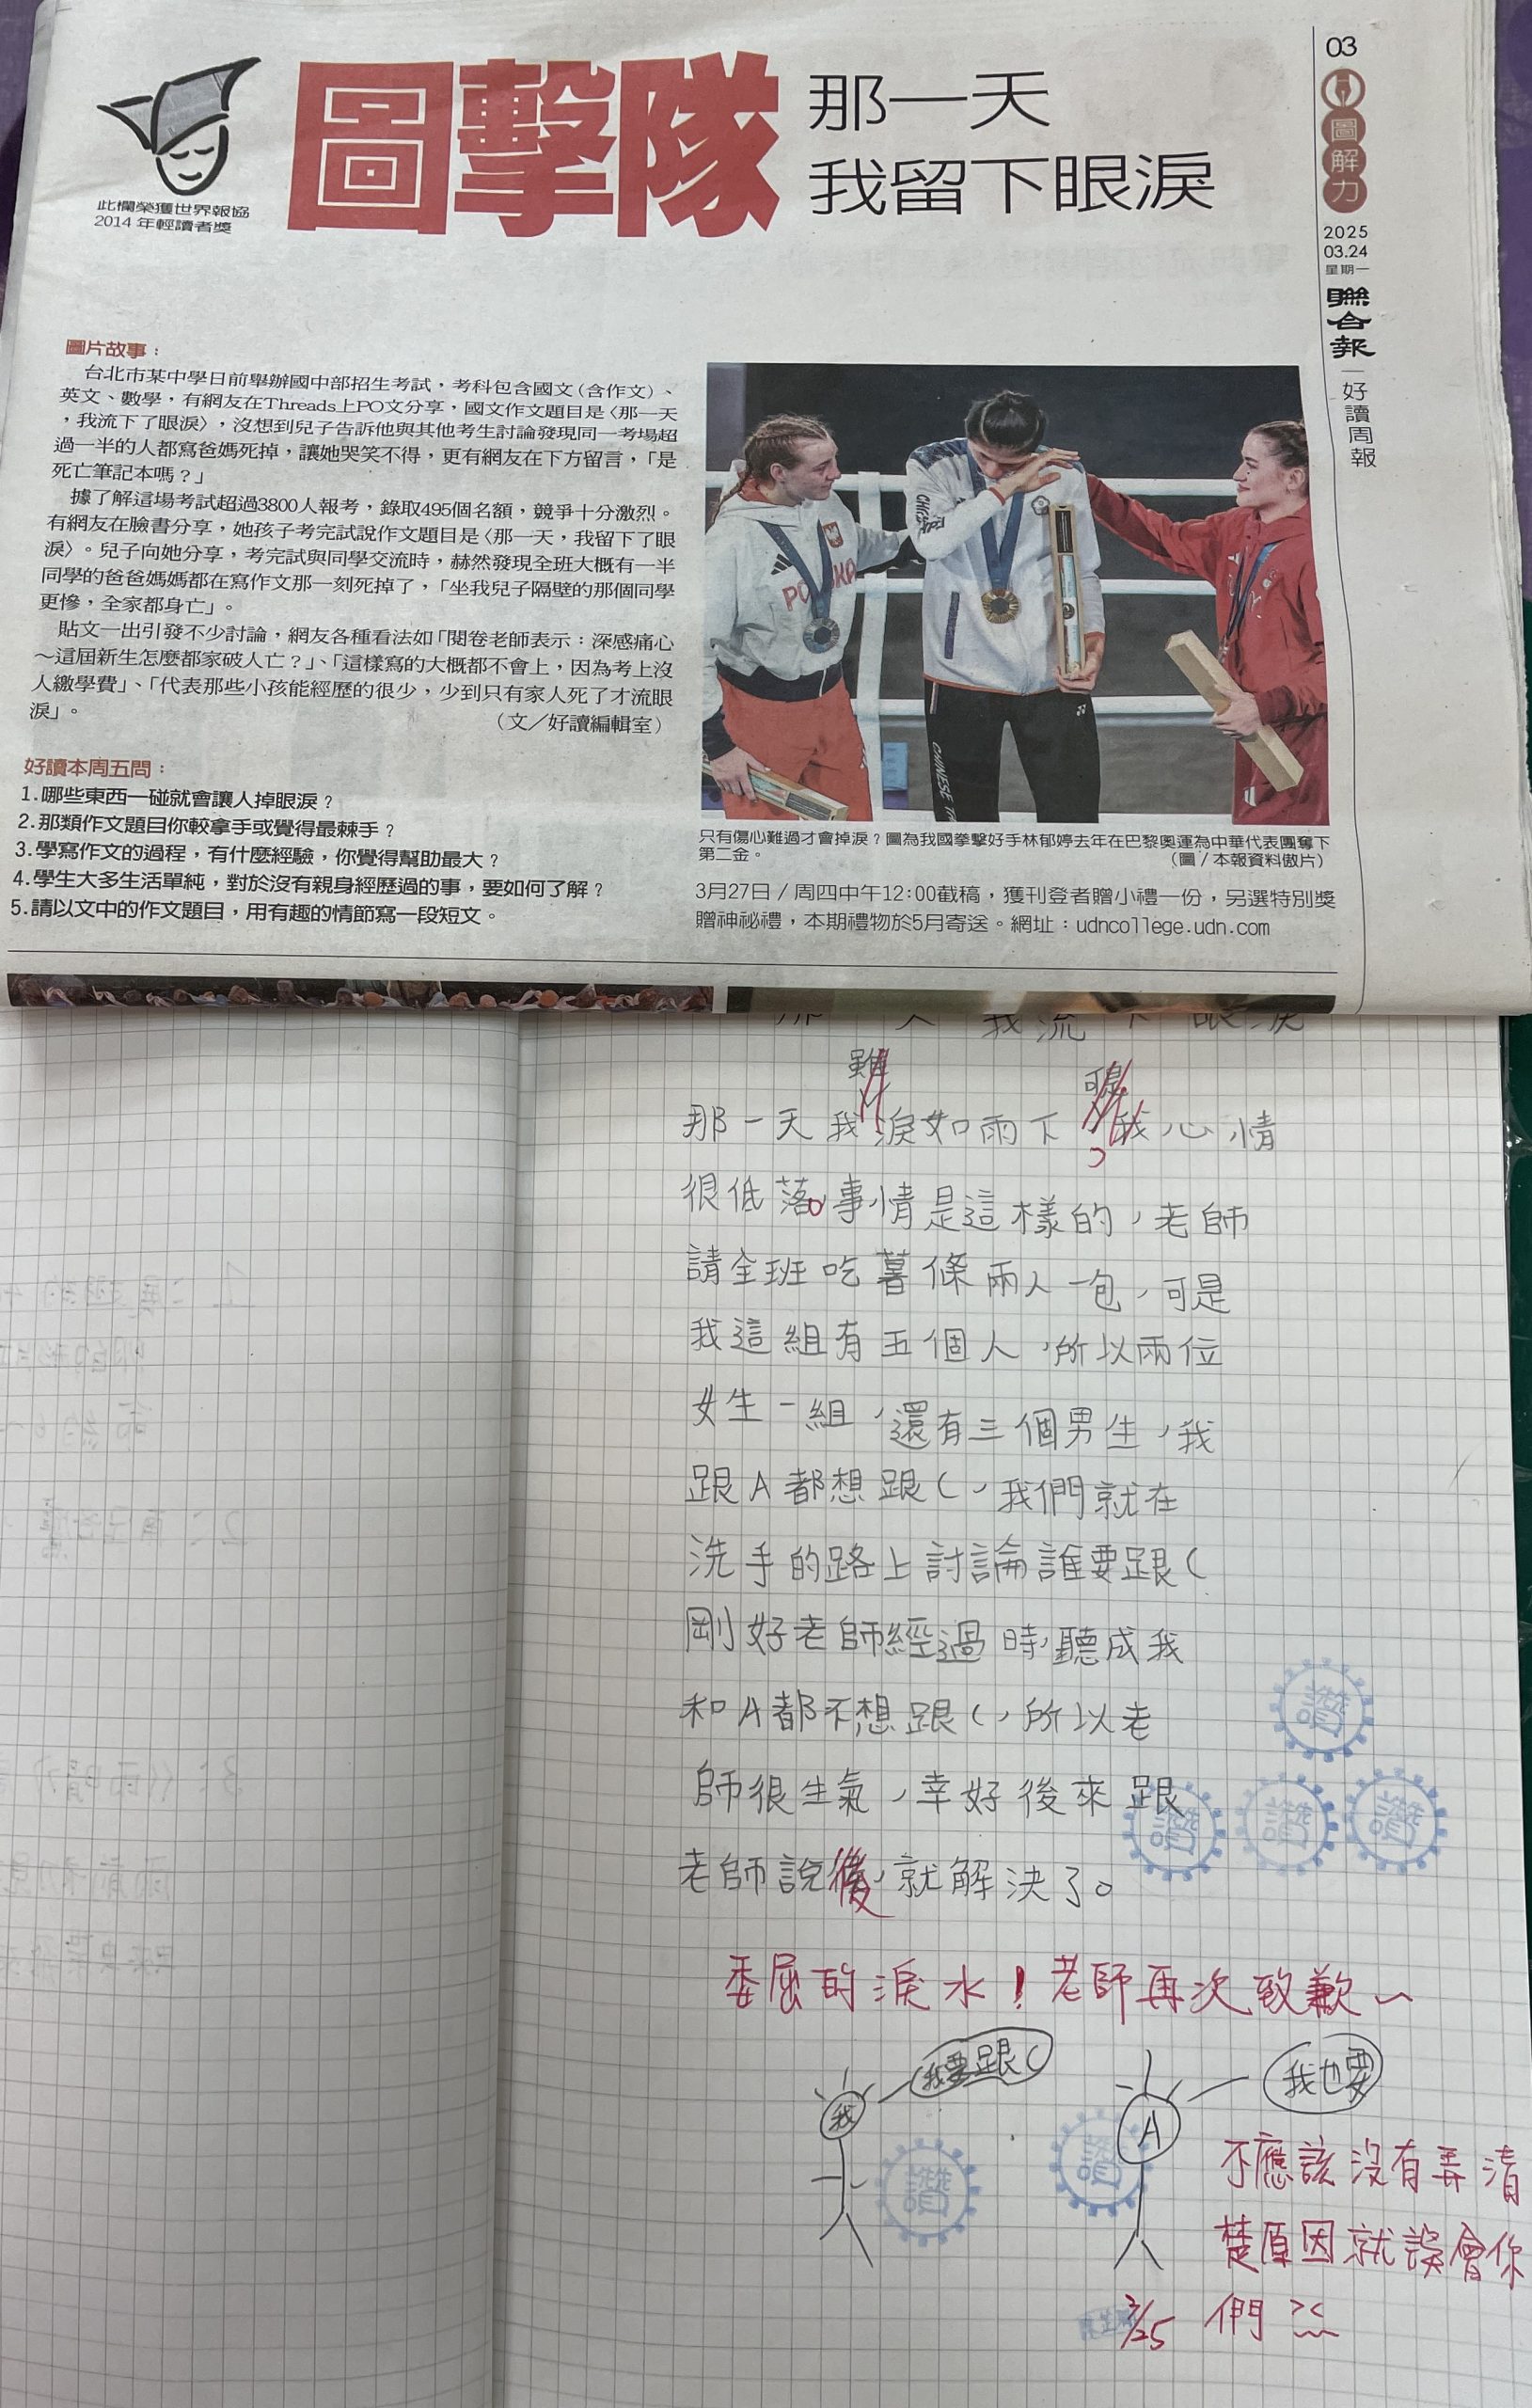 此欄榮獲世界報協
2014年輕讀者獎
圖擊隊
那一天
我留下眼淚
03
圖解力
2025
03.24
星期一
聯合報
好讀周報
圖片故事：
台北市某中學日前舉辦國中部招生考試，考科包含國文(含作文)、
英文、數學，有網友在Threads上PO文分享，國文作文題目是〈那一天
，我流下了眼淚〉，沒想到兒子告訴他與其他考生討論發現同一考場超
過一半的人都寫爸媽死掉，讓她哭笑不得，更有網友在下方留言，「是
死亡筆記本嗎？」
據了解這場考試超過3800人報考，錄取495個名額，競爭十分激烈。
有網友在臉書分享，她孩子考完試說作文題目是〈那一天，我留下了眼
淚〉。兒子向她分享，考完試與同學交流時，赫然發現全班大概有一半
同學的爸爸媽媽都在寫作文那一刻死掉了，「坐我兒子隔壁的那個同學
更慘，全家都身亡」。
貼文一出引發不少討論，網友各種看法如「閱卷老師表示：深感痛心
～這屆新生怎麼都家破人亡？」、「這樣寫的大概都不會上，因為考上沒
人繳學費」、「代表那些小孩能經歷的很少，少到只有家人死了才流眼
淚」。
（文／好讀編輯室）
好讀本周五問：
1.哪些東西一碰就會讓人掉眼淚？
2.那類作文題目你較拿手或覺得最棘手？
3.學寫作文的過程，有什麼經驗，你覺得幫助最大？
4.學生大多生活單純，對於沒有親身經歷過的事，要如何了解？
5.請以文中的作文題目，用有趣的情節寫一段短文。
POLSKA
CHINESE
只有傷心難過才會掉淚？圖為我國拳擊好手林郁婷去年在巴黎奧運為中華代表團奪下
第二金。
（圖／本報資料傲片）
3月27日／周四中午12:00截稿，獲刊登者贈小禮一份，另選特別獎
贈神祕禮，本期禮物於5月寄送。網址：udncollege.udn.com
那一天我流下眼淚
雖
可是
那一天我淚如雨下，我心情
很低落。事情是這樣的，老師
請全班吃薯條兩人一包，可是
我這組有五個人，所以兩位
女生一組，還有三個男生，我
跟A都想跟C，我們就在
洗手的路上討論誰要跟C
剛好老師經過時，聽成我
和A都不想跟C，所以老
師很生氣，幸好後來跟
老師說後，就解決了。
讚
讚
讚
讚
委屈的淚水！老師再次致歉～
我要跟C
我也要
我
A
讚
讚
不應該沒有弄清
楚原因就誤會你
們 ><
3/25